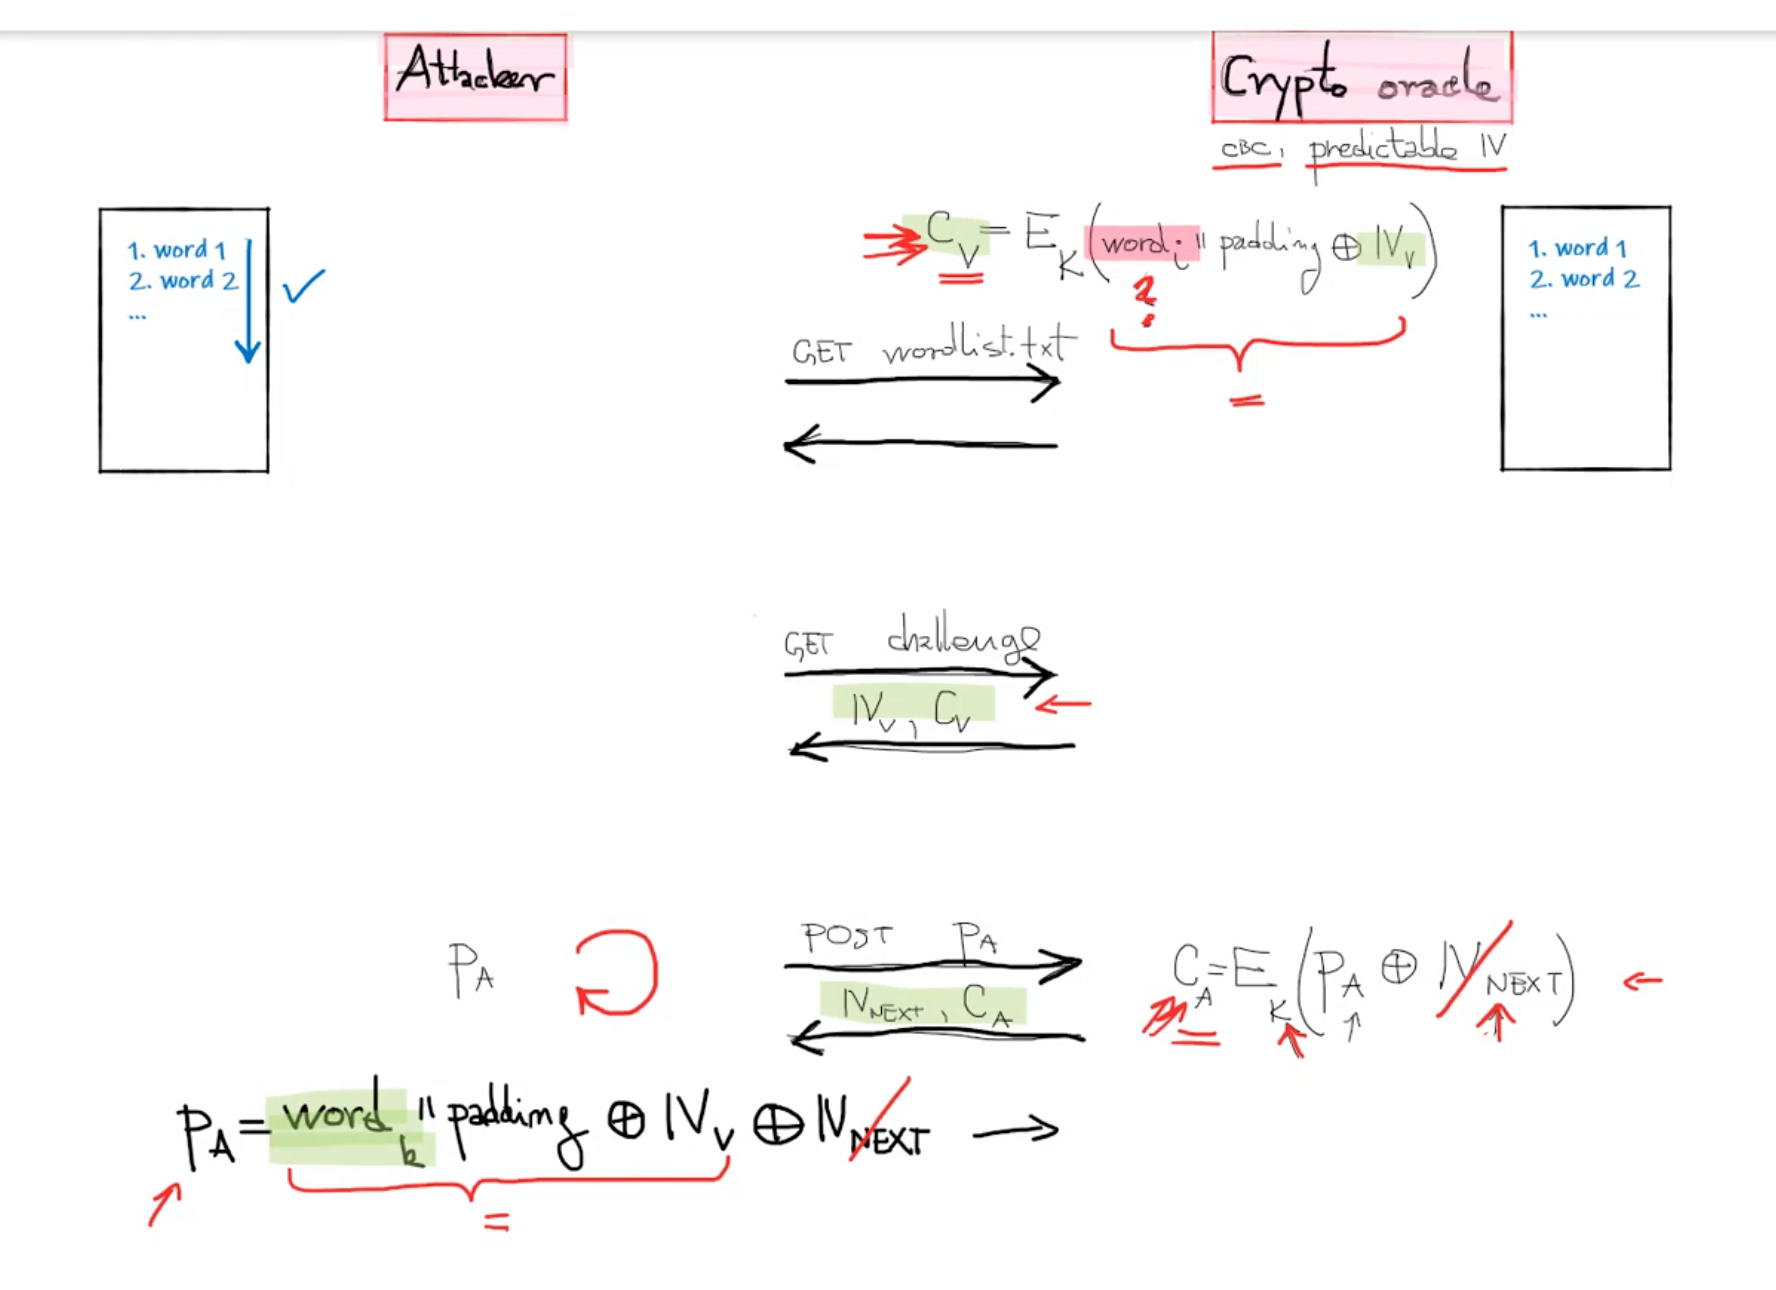 Attacker
Crypto oracle
CBC, predictable IV
1. word 1
2. word 2
...
C_V = E_K (word_i || padding ⊕ IV_V)
?
1. word 1
2. word 2
...
GET wordlist.txt
=
GET challenge
IV_V, C_V
P_A
POST P_A
IV_NEXT, C_A
C_A = E_K (P_A ⊕ IV_NEXT)
P_A = word_k || padding ⊕ IV_V ⊕ IV_NEXT
=